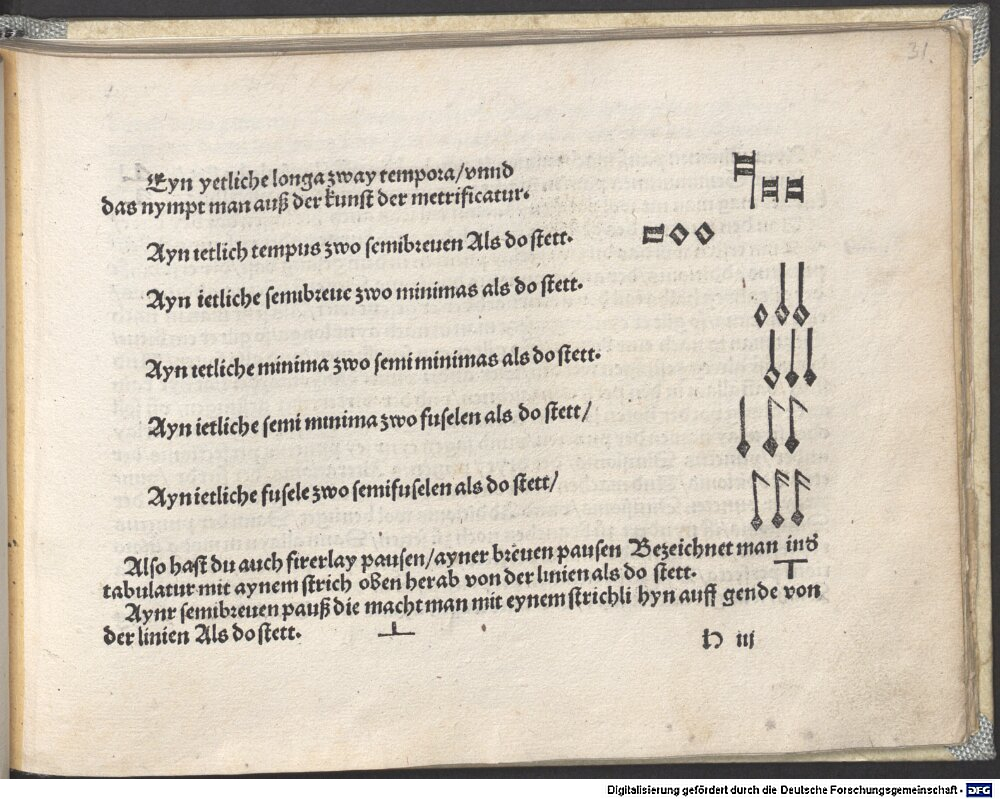 31.
Eyn yetliche longa zway tempora/vnnd
das nympt man auß der kunst der metrificatur.
Ayn ietlich tempus zwo semibreuen Als do stett.
Ayn ietliche semibreue zwo minimas als do stett.
Ayn ietliche minima zwo semi minimas als do stett.
Ayn ietliche semi minima zwo fuselen als do stett/
Ayn ietliche fusele zwo semifuselen als do stett/
Also hast du auch firerlay pausen/ayner breuen pausen Bezeichnet man ins
tabulatur mit aynem strich oben herab von der linien als do stett.
Aynr semibreuen pauß die macht man mit eynem strichli hyn auff gende von
der linien Als do stett.
H iij
Digitalisierung gefördert durch die Deutsche Forschungsgemeinschaft - DFG